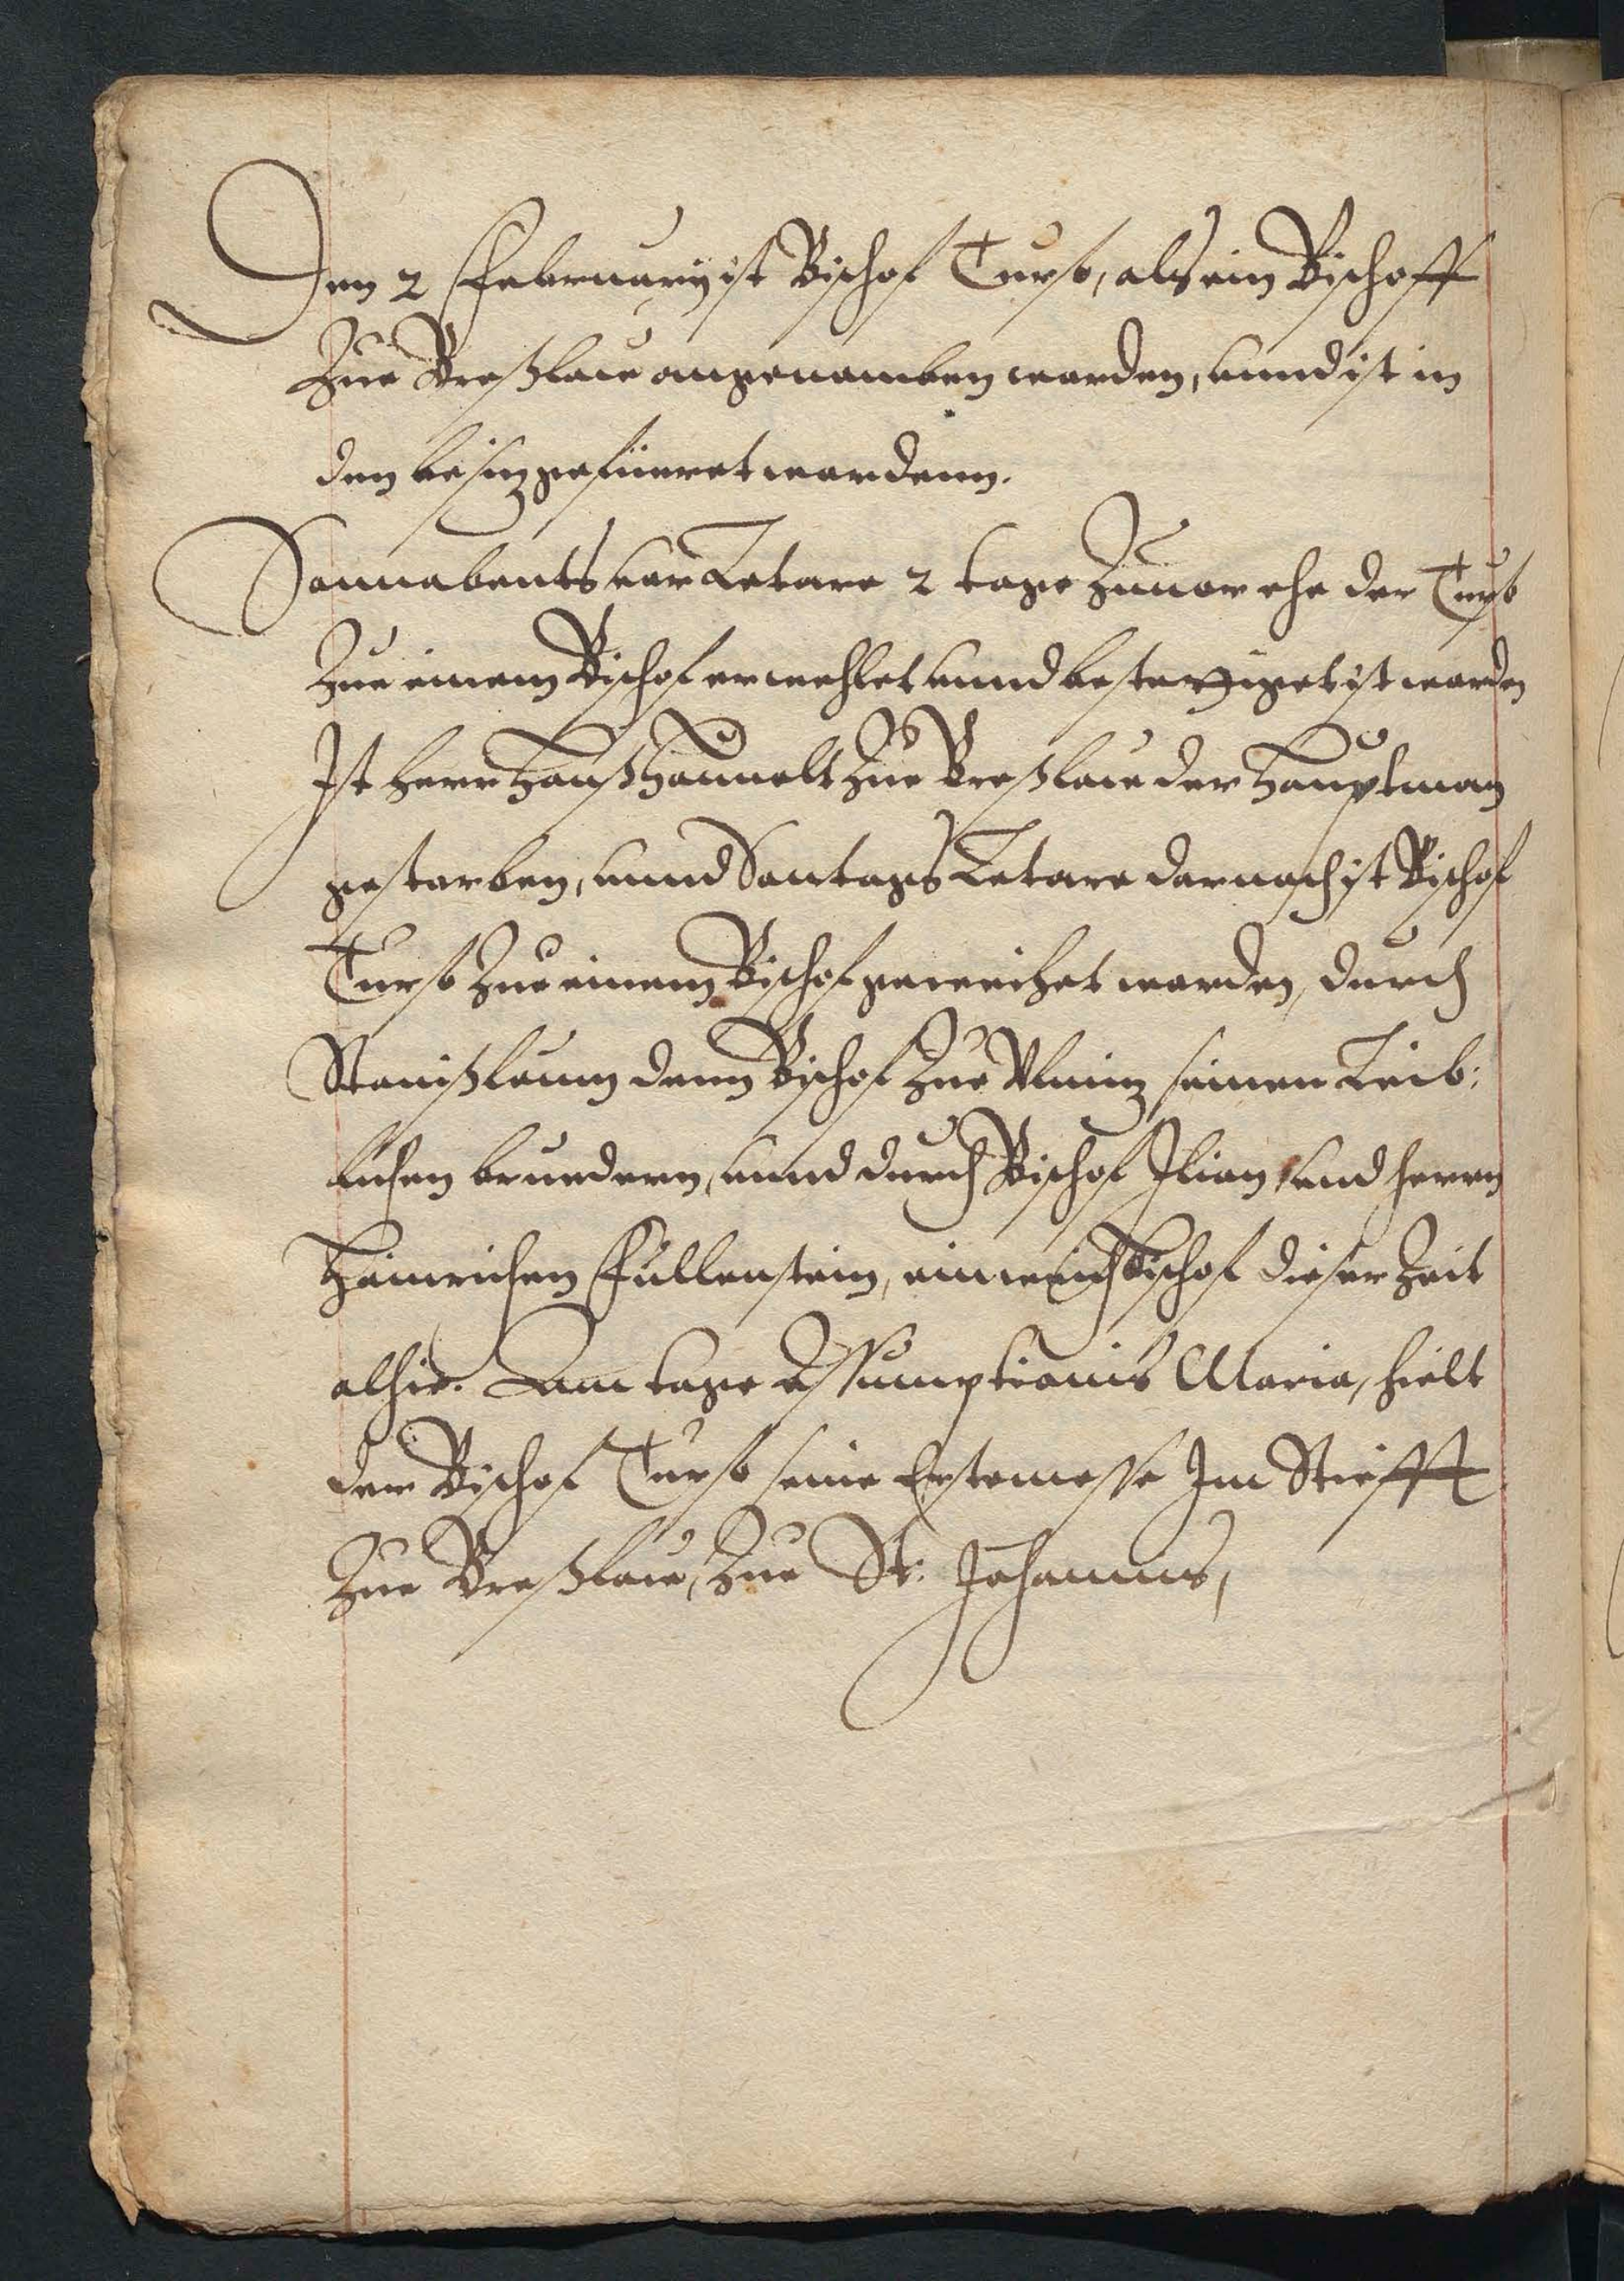 Den 2 Februarÿ ist Bischof Turso, als ein Bischoff
Zue Breßlaw angenomben worden, unnd ist in
den besiz gefüeret wordenn.
Sonnabents vor Letare 2 tage Zuuor ehe der Turso
Zue einem Bischof erwehlet unnd bestettiget ist worden
Ist herr Hanß Haunolt Zue Breßlaw der Hauptman
gestorben, unnd Sontags Letare darnach ist Bischof
Turso Zue einem Bischof geweihet worden, durch
Stanißlaum denn Bischof Zue Olmiz seinen Leib:
lichen bruedern, unnd durch Bischof Ilian unnd herrn
Heinrichen Füllenstein, ein weich Bischof dieser Zeit
alhie. Am tage Assumptionis Maria, hielt
der Bischof Turso seine Erstemesse Im Stiefft
Zue Breßlaw, Zue St: Johannis,